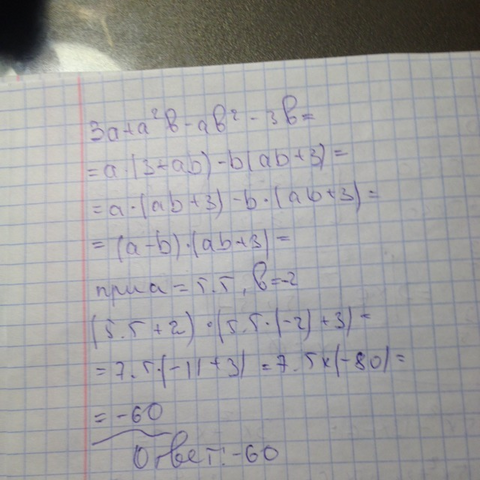 3a+a²b-ab²-3b=
=a·(3+ab)-b(ab+3)=
=a·(ab+3)-b·(ab+3)=
=(a-b)·(ab+3)=
при a=5.5, b=-2
(5.5+2)·(5.5·(-2)+3)=
=7.5·(-11+3)=7.5×(-80)=
=-60
Ответ:-60